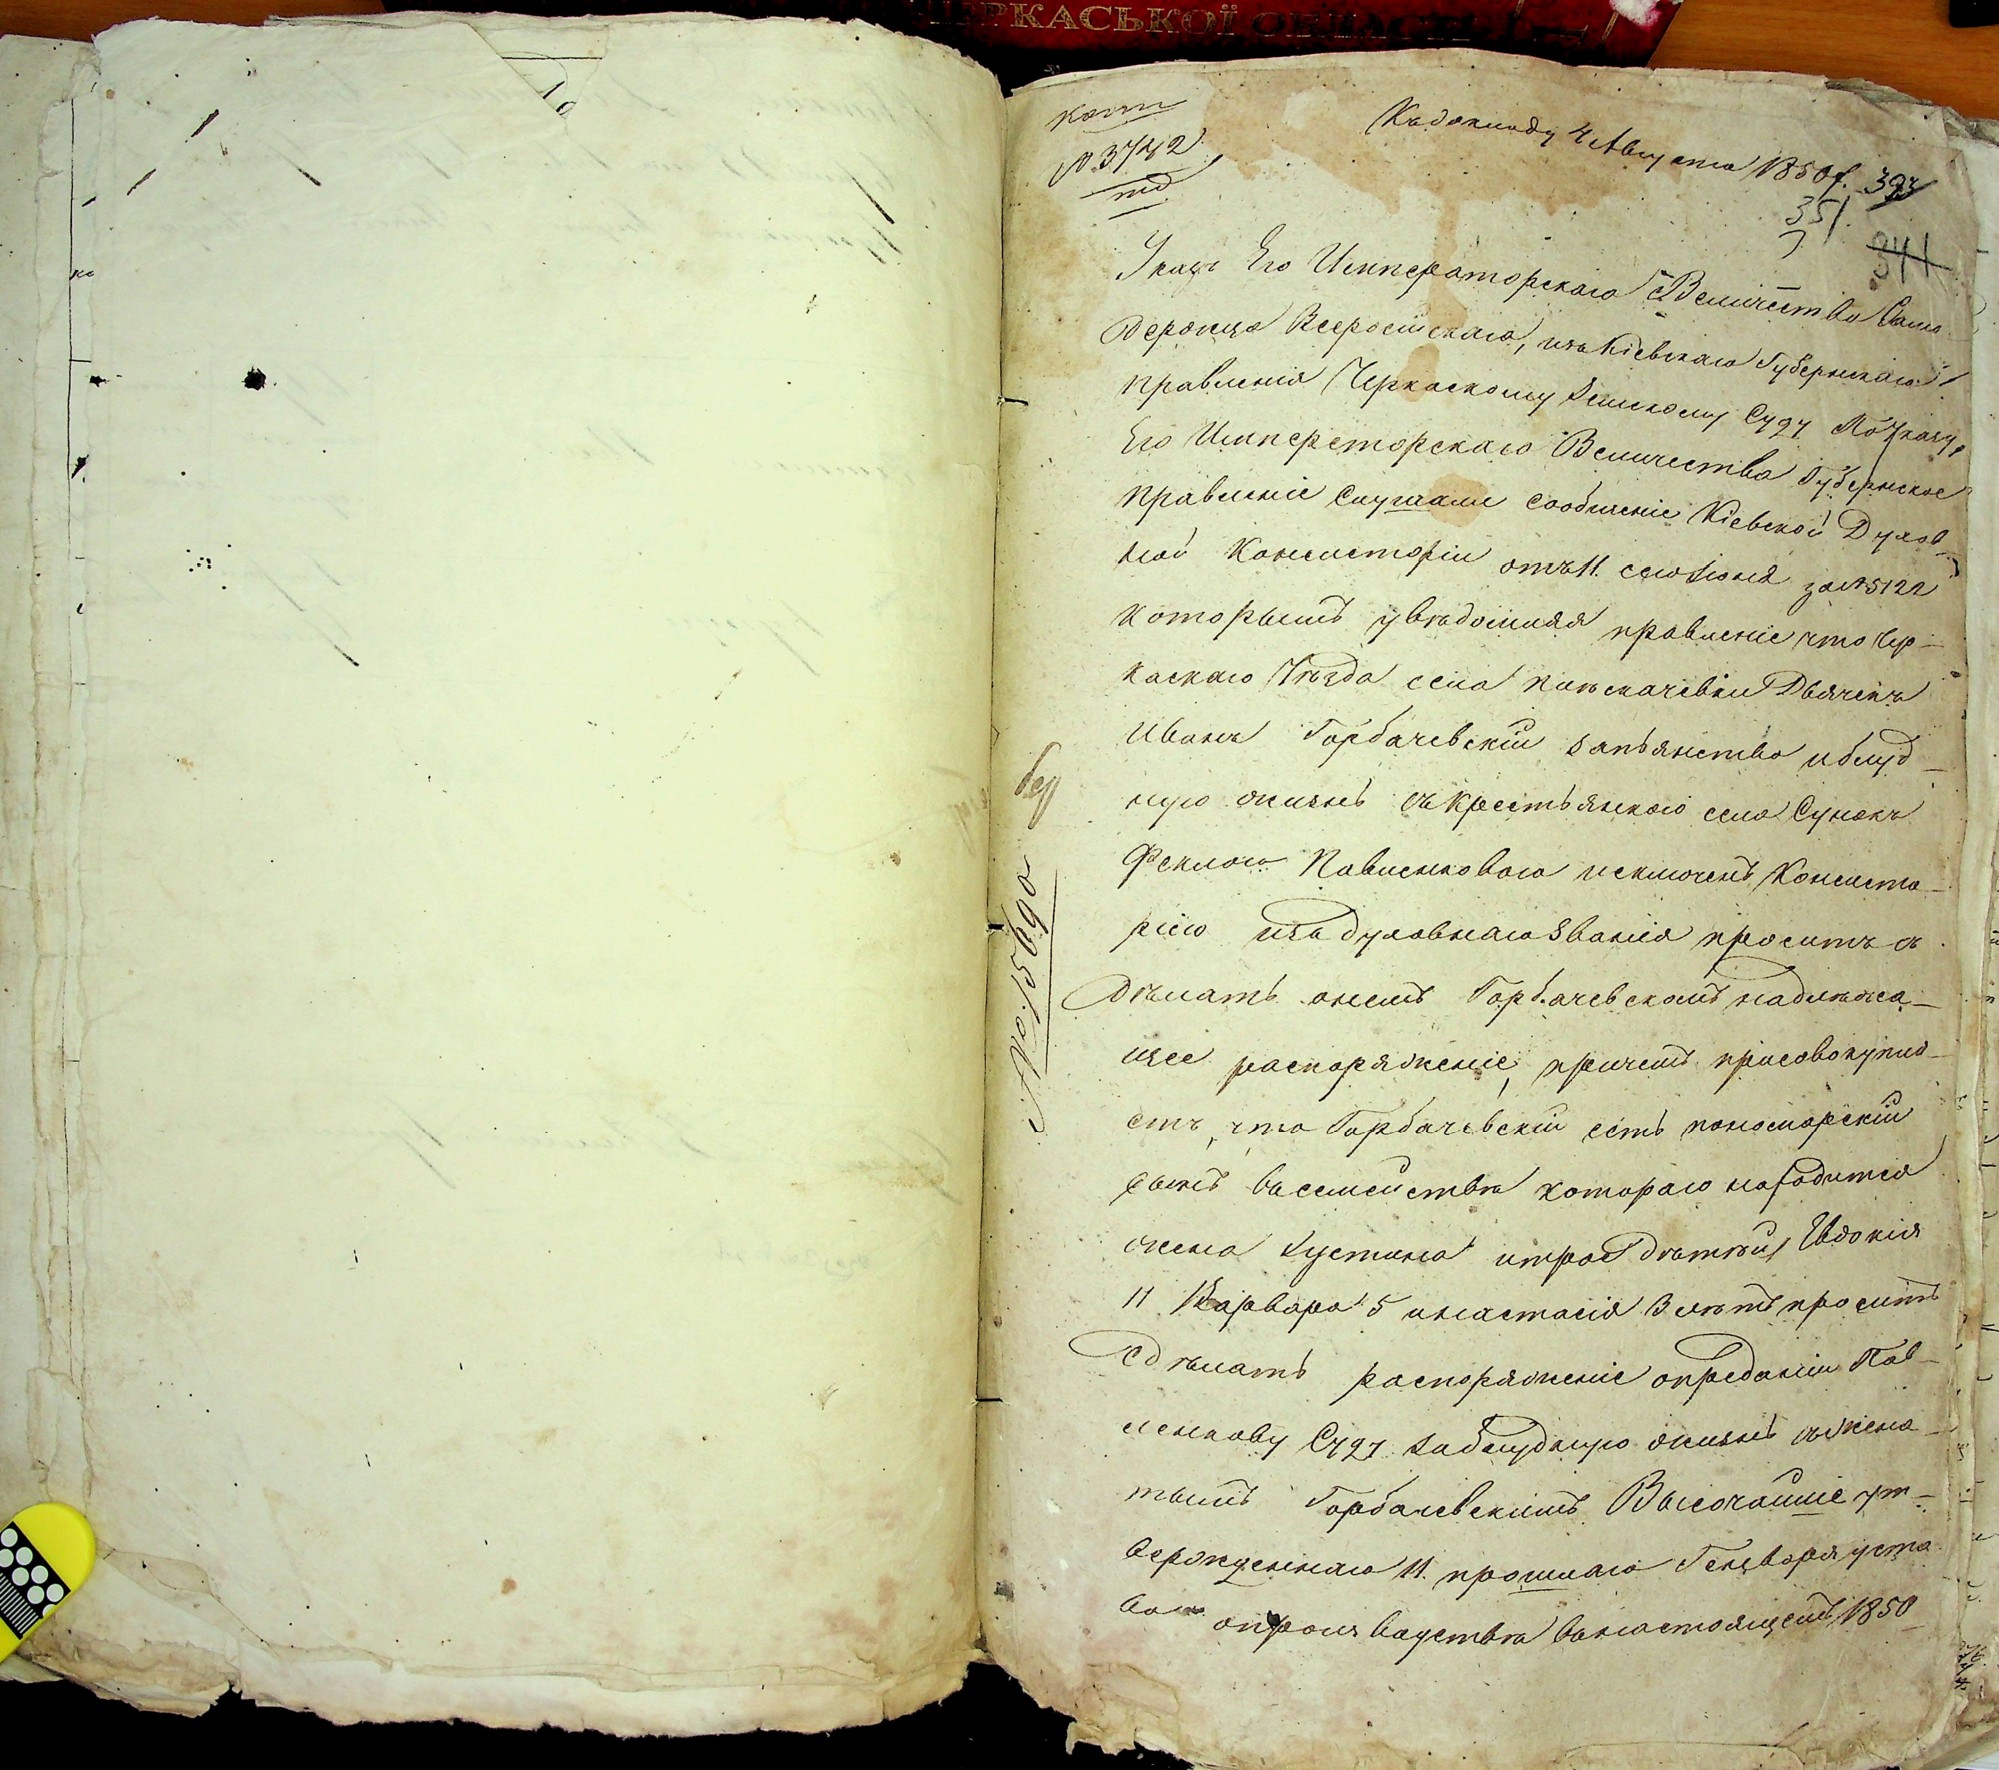 ЧЕРКАСЬКОЇ ОБЛАСТІ
№ 3742
Къ докладу 4 Августа 1850 г.
351
341
Указъ Его Императорскаго Величества Само
держца Всеросійскаго, изъ Кіевскаго Губернскаго
правленія Черкаскому Земскому Суду По Указу
Его Императорскаго Величества Губернское
правленіе Слушали сообщеніе Кіевской Духов-
ной Консисторіи отъ 11. сего Іюня за № 5122
которымъ увѣдомляя правленіе что Чер-
каскаго Уѣзда села Плескачевки Дьячекъ
Иванъ Горбачевскій за пьянство и блуд-
ную жизнь съ крестьянкою села Сунокъ
Феклою Павленковою исключенъ Консисто-
ріею изъ духовнаго званія проситъ с
дѣлать онемъ Горбачевскомъ надлѣжа-
щее распоряженіе, причемъ присовокупля-
етъ, что Горбачевскій есть пономарскій
сынъ въ семействѣ котораго находится
жена Іустина и трое дѣтей, Евдокія
11 Варвара 5 и Настасія 3 лѣтъ проситъ
сдѣлать распоряженіе о преданіи Пав-
ленкову Суду за блудную жизнь съ жена-
тымъ Горбачевскимъ Высочайше ут-
вержденнаго 11. прошлаго Генваря уста
ва о производствѣ въ настоящемъ 1850
№ 15690